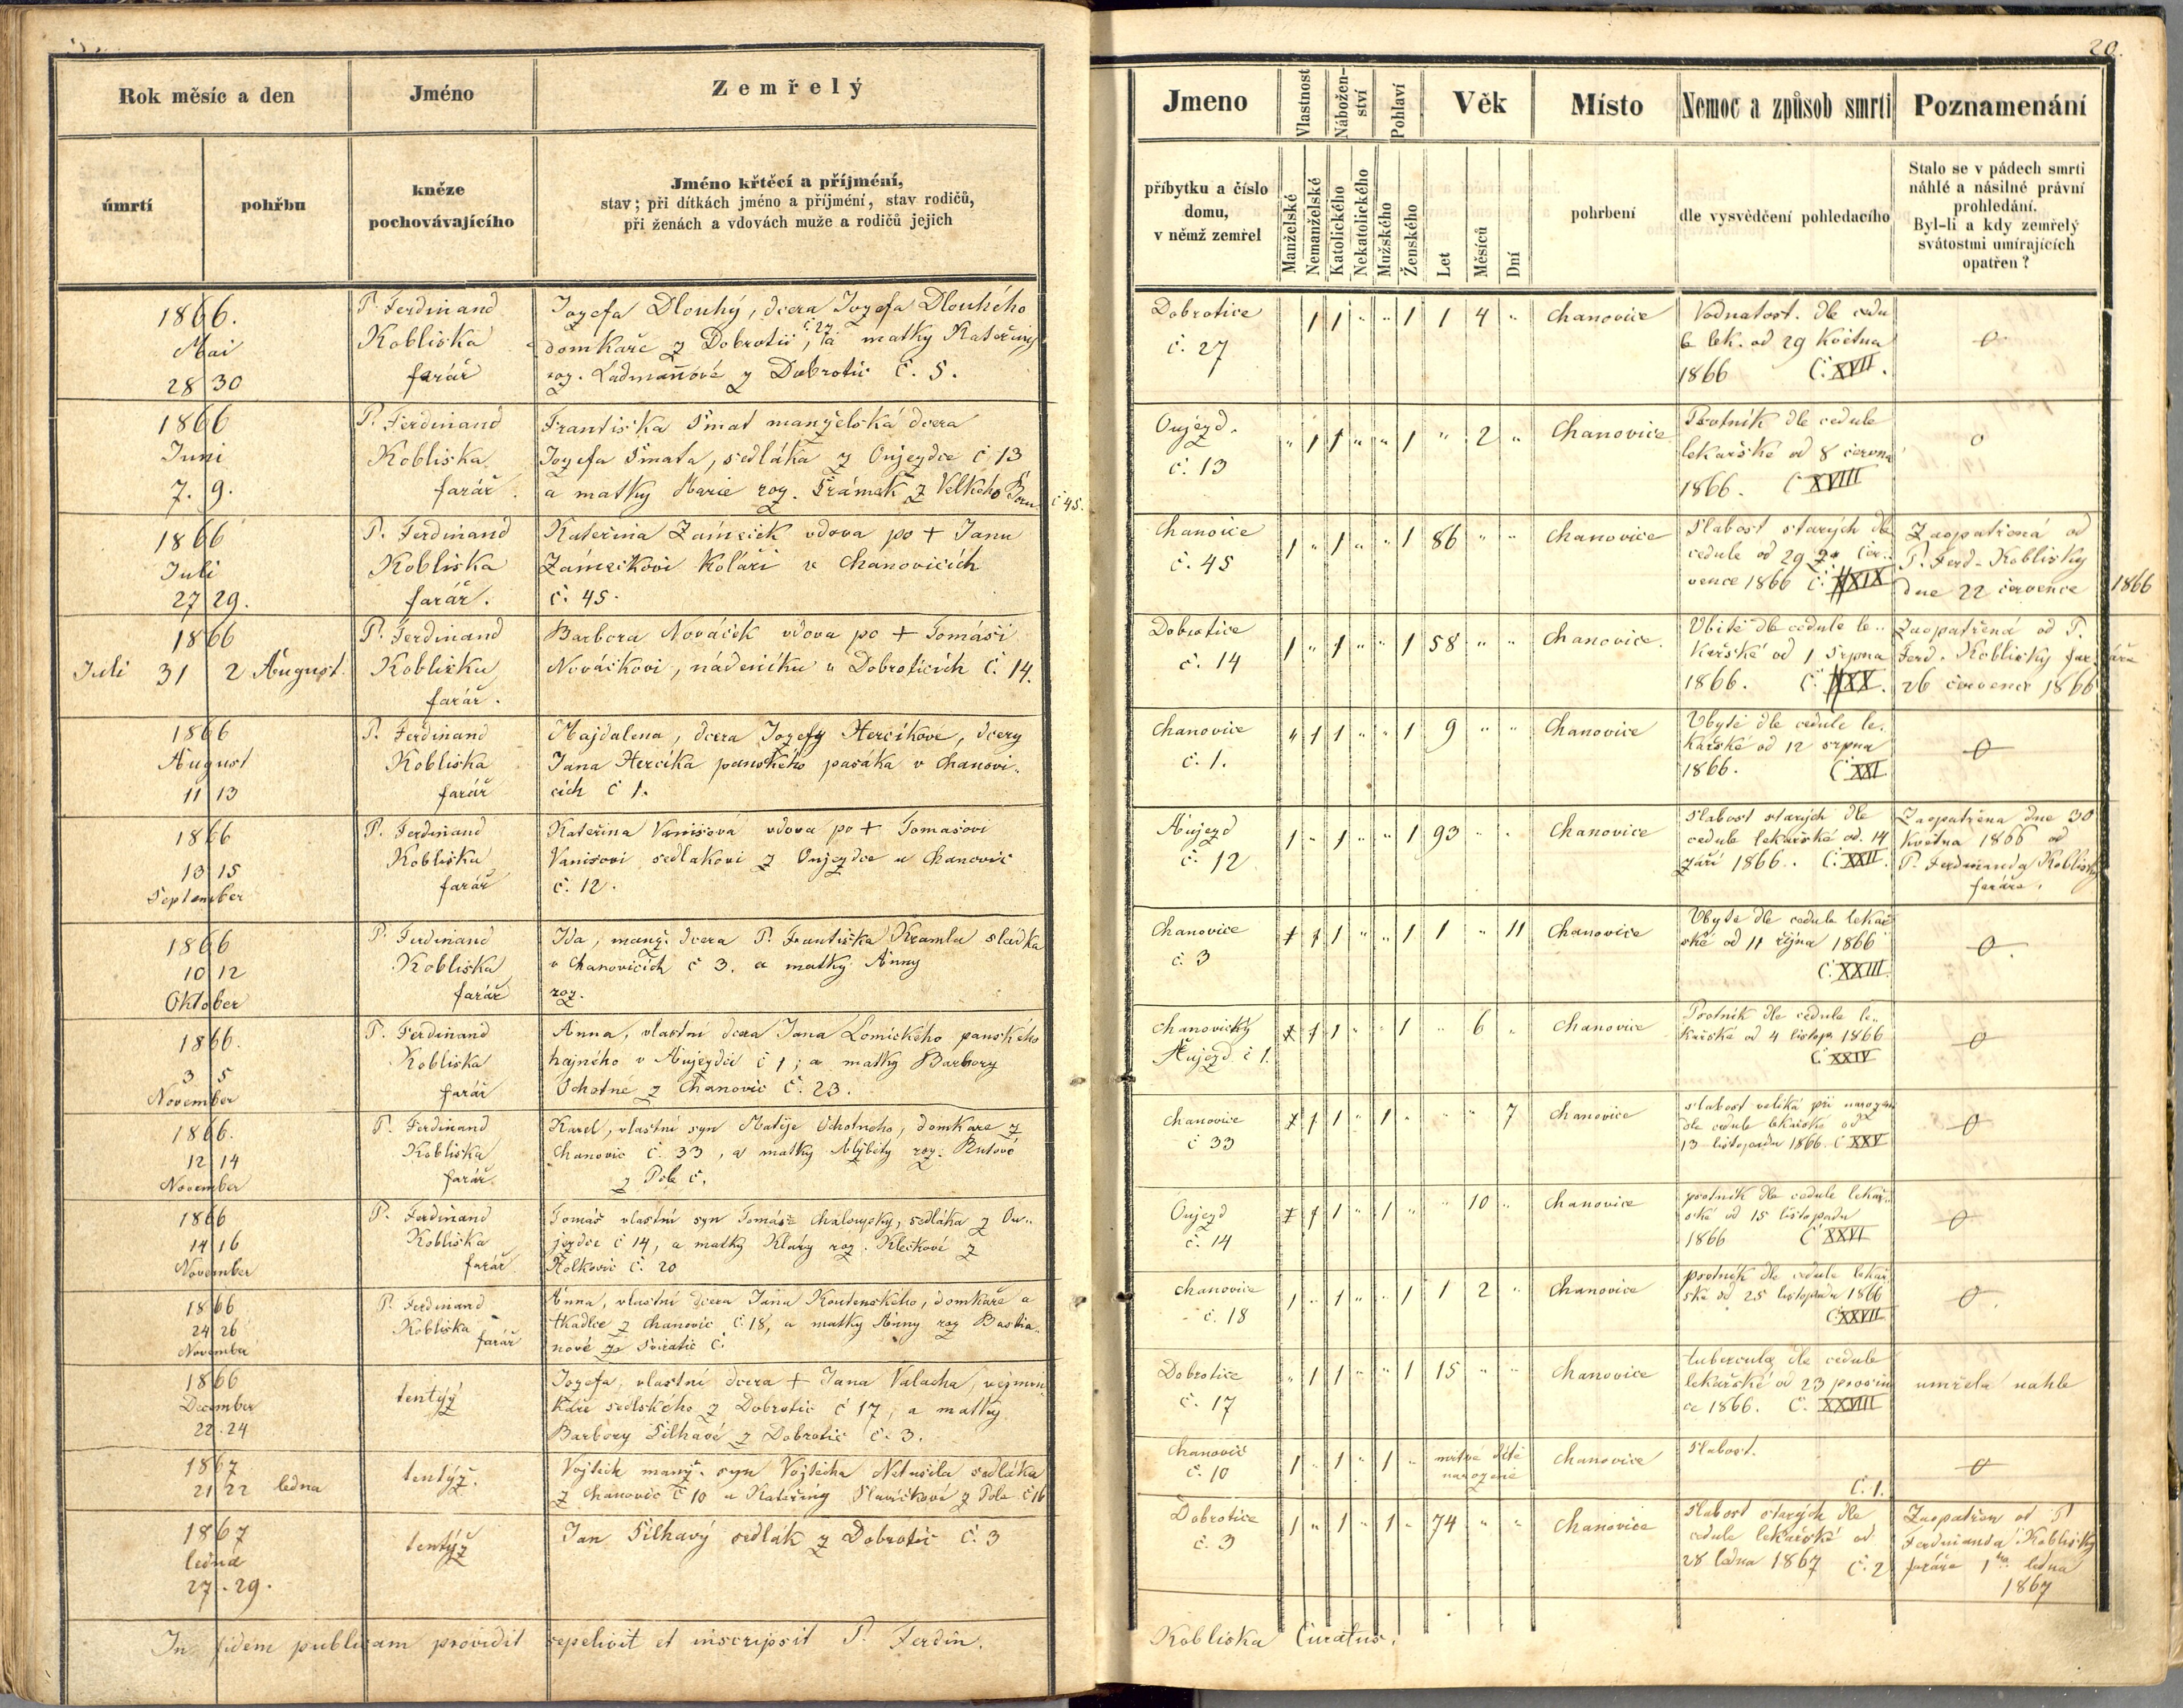 20.
Rok měsíc a den
Jméno
Zemřelý
úmrtí
pohřbu
kněze
pochovávajícího
Jméno křtěcí a příjmení,
stav; při dítkách jméno a příjmení, stav rodičů,
při ženách a vdovách muže a rodičů jejich
Jmeno
Vlastnost
Nábožen-
ství
Pohlaví
Věk
Místo
Nemoc a způsob smrti
Poznamenání
příbytku a číslo
domu,
v němž zemřel
Manželské
Nemanželské
Katolického
Nekatolického
Mužského
Ženského
Let
Měsíců
Dní
pohrbení
dle vysvědčení pohledacího
Stalo se v pádech smrti
náhlé a násilné právní
prohledání.
Byl-li a kdy zemřelý
svátostmi umírajících
opatřen?
1866.
Mai
28 30
P. Ferdinand
Kobliska
farář
Jozefa Dlouhý, dcera Jozefa Dlouhého
domkaře z Dobrotic, č 27 a matky Kateřiny
roz. Ladmanňové z Dobrotic č. 5.
Dobrotice
č. 27
1 1 " " 1 1 4 "
Chanovice
Vodnatost. dle cedu
le lek. od 29 Května
1866 Č. XVII.
0
1866
Juni
7. 9.
P. Ferdinand
Kobliska
farář.
Frantiska Šmat manzelská dcera
Jozefa Šmata, sedláka z Oujezdce č 13
a matky Marie roz. Trámek z Velkého Boru č 45.
Oujezd.
č. 13
" 1 1 " " 1 " 2 "
Chanovice
Psotník dle cedule
lekařské od 8 června
1866. Č XVIII
0
1866
Juli
27 29.
P. Ferdinand
Kobliska
farář.
Kateřina Zámecik vdova po + Janu
Zámecikovi Koláři v Chanovicích
č. 45.
Chanoice
č. 45
1 " 1 " " 1 86 " "
Chanovice
Slabost starých dle
cedule od 29 čer..
vence 1866 Č. XIX
Zaopatřená od
P. Ferd. Kobližky
dne 22 července 1866
1866
Juli 31 2 August.
P. Ferdinand
Kobliska
farář.
Barbora Nováček vdova po + Tomáši
Nováčkovi, nádeníku v Dobroticích č. 14.
Dobrotice
č. 14
1 " 1 " " 1 58 " "
Chanovice.
Ubité dle cedule le..
kařské od 1 Srpna
1866. Č. XX.
Zaopatřená od P.
Ferd. Kobližky faráře
26 července 1866
1866
August
11 13
P. Ferdinand
Kobliska
farář
Majdalena, dcera Jozefy Hercíkové, dcery
Jana Hercíka panského pasáka v Chanovi-
cích č 1.
Chanovice
č. 1.
" 1 1 " " 1 9 " "
Chanovice
Ubyté dle cedule le.
kařské od 12 srpna
1866. Č XXI
0
1866
13 15
September
P. Ferdinand
Kobliska
farář
Kateřina Vanisová vdova po + Tomašovi
Vanisovi sedlakovi z Oujezdce u Chanovic
č. 12.
Aujezd
č. 12
1 " 1 " " 1 93 " "
Chanovice
Slabost starých dle
cedule lekařské od. 14
září 1866. Č. XXII.
Zaopatřena dne 30
Května 1866 od
P. Ferdinanda Koblisky
faráře.
1866
10 12
Oktober
P. Ferdinand
Kobliska
farář
Ida, manž. dcera P. Františka Kramla sladka
v Chanovicích č 3. a matky Anny
roz.
Chanovice
č. 3
1 1 1 " " 1 1 " 11
Chanovice
Ubyté dle cedule lekař
ské od 11 října 1866
Č. XXIII.
0.
1866.
3 5
November
P. Ferdinand
Kobliska
farář
Anna, vlastní dcera Jana Lomického panského
hajného v Aujezdci č 1; a matky Barbory
Ochotné z Chanovic č. 23.
Chanovický
Aujezd č 1.
1 1 1 " " 1 " 6 "
Chanovice
Psotník dle cedule le..
kařské od 4 listop. 1866
Č XXIV
0
1866.
12 14
November
P. Ferdinand
Kobliska
farář.
Karel, vlastní syn Matěje Ochotného, domkaře z
Chanovic č. 33, a matky Alžběty roz. Rutové
z Pole č.
Chanovice
č 33
1 1 1 " 1 " " " 7
Chanovice
slabost veliká při narozen
dle cedule lekařské od
13 listopadu 1866. Č XXV
0
1866
14 16
November
P. Ferdinand
Kobliska
farář.
Tomáš vlastní syn Tomáše Chaloupky, sedláka z Ou..
jezdce č 14, a matky Kláry roz. Klečkové z
Holkovic č. 20
Oujezd
č. 14
1 1 1 " 1 " " 10 "
Chanovice
psotník dle cedule lekař..
ské od 15 listopadu
1866 Č XXVI
0
1866
24 26
November
P. Ferdinand
Kobliska
farář
Anna, vlastní dcera Jana Koutenského, domkaře a
tkadlce z Chanovic č. 18, a matky Anny roz Bastia..
nové ze Sviratic č.
Chanovice
č. 18
1 " 1 " " 1 1 2 "
Chanovice
psotník dle cedule lekař
ské od 25 listopadu 1866
Č XXVII
0.
1866
December
22. 24
tentýž
Jozefa, vlastní dcera + Jana Valacha, vejmin
káře sedlského z Dobrotic č 17, a matky
Barbory Šilhavé z Dobrotic č. 3.
Dobrotice
č. 17
" 1 1 " " 1 15 " "
Chanovice
tuberculy dle cedule
lekařské od 23 prosin
ce 1866. Č. XXVIII
umřela nahle
1867
21 22 ledna
tentýž.
Vojtěch manž. syn Vojtěcha Netušila sedláka
z Chanovic č 10 a Kateřiny Slavíčkové z Pole č 16
Chanovic
č. 10
1 " 1 " 1 " mrtvé dítě
narozené
Chanovice
Slabost.
Č. 1.
0
1867
ledna
27. 29.
tentýž
Jan Šilhavý sedlák z Dobrotic č. 3
Dobrotice
č. 3
1 " 1 " 1 " 74 " "
Chanovice
Slabost starých dle
cedule lekařské od
28 ledna 1867 č. 2
Zaopatřen od P
Ferdinanda Koblisky
faráře 1ho ledna
1867
In fidem publicam providit sepelivit et inscripsit P. Ferdin.
Kobliska Curatus.